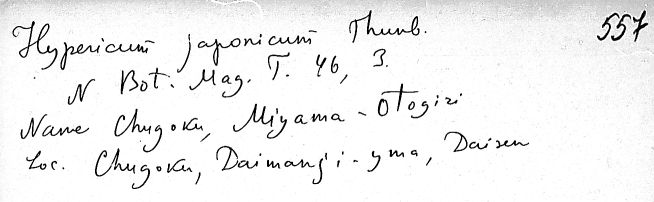 Hypericum japonicum Thunb. 557
N Bot. Mag. T. 46, 3.
Name Chugoku, Miyama-Otogiri
Loc. Chugoku, Daimanji-yma, Daisen